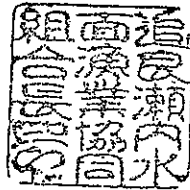 追良瀬内水
面漁業協同
組合長之印